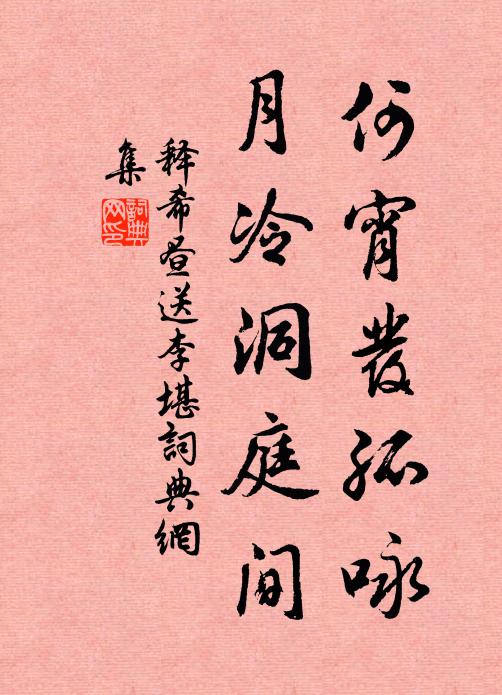 何宵發孤咏
月冷洞庭间
释希昼送李堪詞典網
集
詞典网印